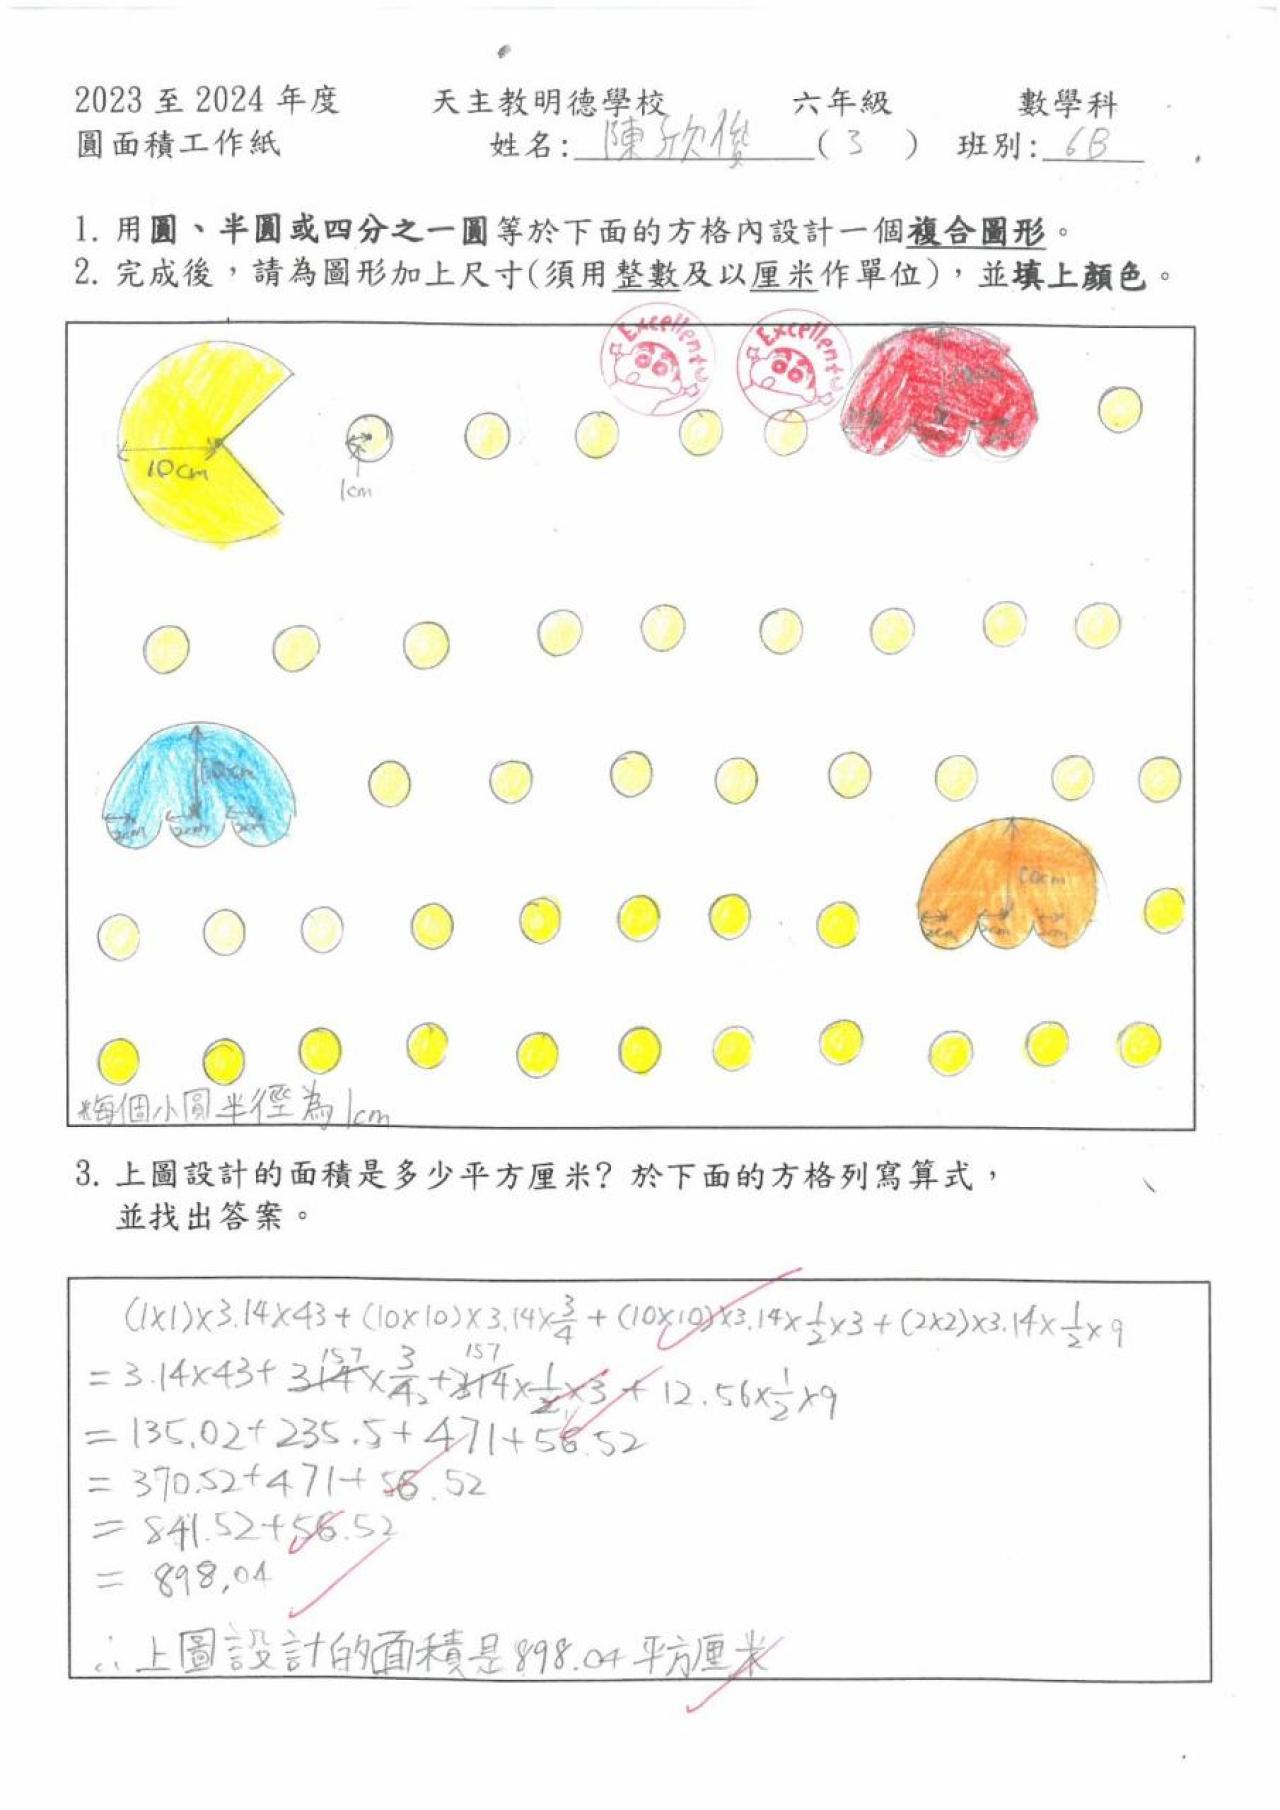 2023 至 2024 年度 天主教明德學校 六年級 數學科
圓面積工作紙 姓名: 陳欣俊 ( 3 ) 班別: 6B
1. 用圓、半圓或四分之一圓等於下面的方格內設計一個複合圖形。
2. 完成後，請為圖形加上尺寸(須用整數及以厘米作單位)，並填上顏色。
Excellent
Excellent
10cm
1cm
10cm
2cm 2cm 2cm
10cm
2cm 2cm 2cm
*每個小圓半徑為1cm
3. 上圖設計的面積是多少平方厘米? 於下面的方格列寫算式，
並找出答案。
(1×1)×3.14×43+(10×10)×3.14×3/4+(10×10)×3.14×1/2×3+(2×2)×3.14×1/2×9
157 157
=3.14×43+314×3/4 2+314×1/2 1×3+12.56×1/2×9
=135.02+235.5+471+56.52
=370.52+471+56.52
=841.52+56.52
=898.04
∴上圖設計的面積是898.04平方厘米